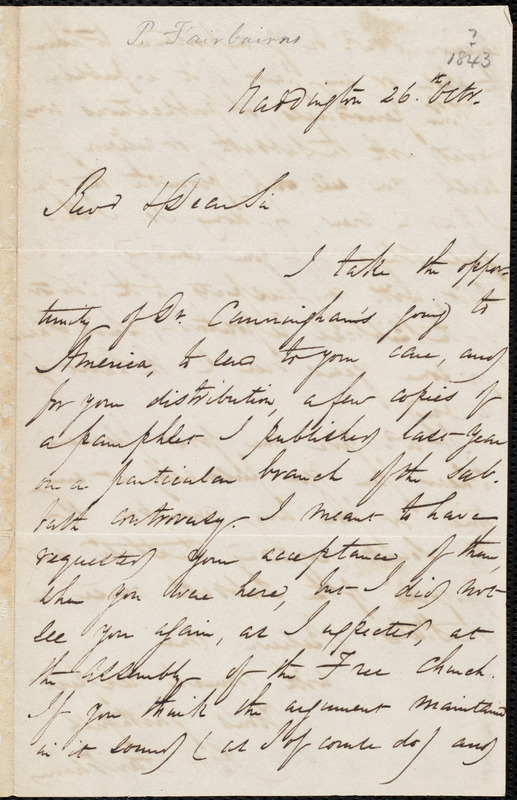 P. Fairbairns
?
1843
Haddington 26th Octr.
Revd & Dear Sir
I take the oppor-
tunity of Dr. Cunningham's going to
America, to send to your care, and
for your distribution, a few copies of
a pamphlet I published last year
on a particular branch of the Sab-
bath controversy. I meant to have
requested your acceptance of them,
when you were here, but I did not
see you again, as I expected, at
the assembly of the Free Church.
If you think the argument maintained
in it sound (as I of course do) and